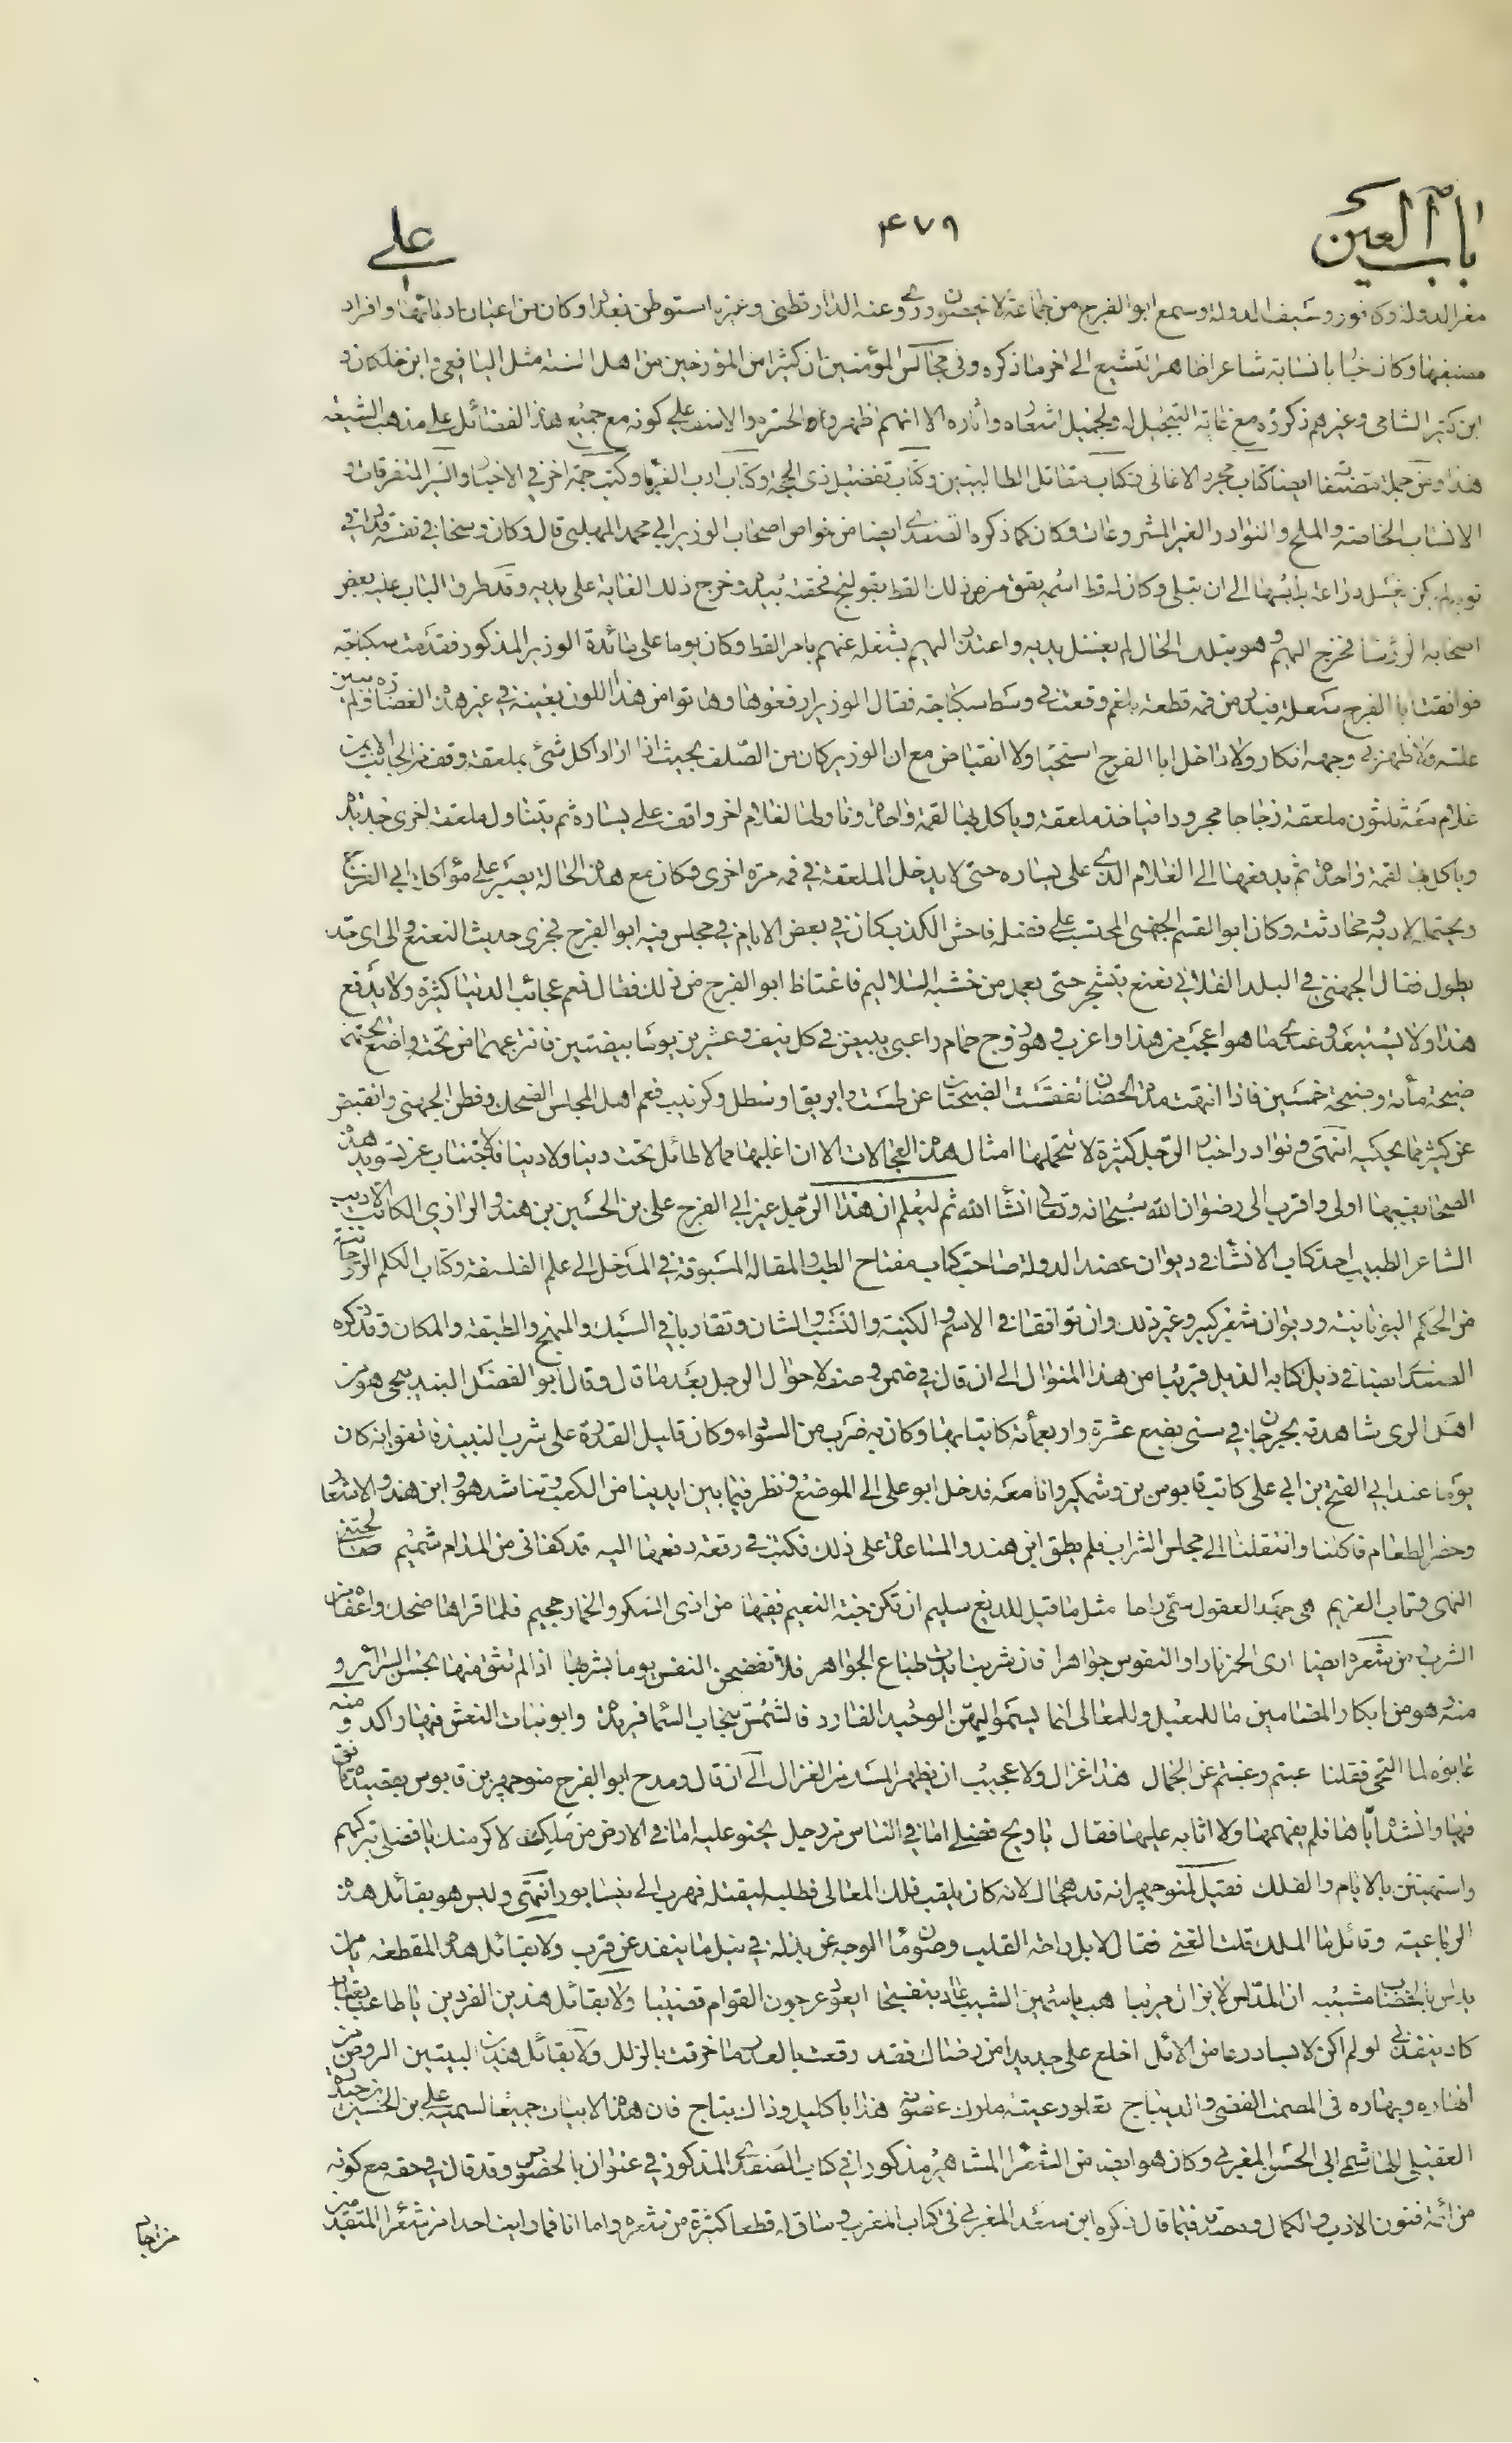 باب العين
۴۷۹
علي
معز الدولة وكافور وسيف الدولة وسمع ابو الفرج من جماعة لا يحصون وروى عنه الدارقطني وغيره استوطن بغداد وكان من اعيان ادبائها وافراد
مصنفيها وكان اخباريا نسابة شاعرا ظاهر التشيع الى اخر ما ذكره وفي مجالس المؤمنين ان كثيرا من المؤرخين من اهل السنة مثل اليافعي وابن خلكان و
ابن كثير الشامي وغيرهم ذكروه مع غاية التبجيل له ولجميل اشعاره واثاره الا انهم اظهروا الحسرة والاسف على كونه مع جميع هذه الفضائل على مذهب الشيعة
هذا ومن جملة مصنفاته ايضا كتاب مجرد الاغاني وكتاب مقاتل الطالبيين وكتاب تفضيل ذي الحجة وكتاب ادب الغرباء وكتب جمة اخر في الاخبار والسير المتفرقات و
الانساب الخاصة والملح والنوادر الغير المشروعات وكان كما ذكره الصفدي ايضا من خواص اصحاب الوزير ابي محمد المهلبي قال وكان وسخا في نفسه قذرا في
ثوبه لم يكن يغسل دراعة يلبسها الى ان تبلى وكان له قط اسمه يقق مرض ذلك القط بقولنج فحقنه بيده وخرج ذلك الغاية على يديه وقد طرق الباب عليه بعض
اصحابه الرؤسا فخرج اليهم وهو بتلك الحال لم يغسل يديه واعتذر اليهم بشغله عنهم بامر القط وكان يوما على مائدة الوزير المذكور فقدمت سكباجة
فوافقت ابا الفرج سعلة فبدر من فمه قطعة بلغم وقعت في وسط سكباجة فقال الوزير ارفعوها وهاتوا من هذا اللون بعينه في غير هذه الغضارة ولم يبن
عليه ولا ظهر في وجهه انكار ولا داخل ابا الفرج استحيا ولا انقباض مع ان الوزير كان من الصلف بحيث اذا اراد اكل شئ بملعقة وقف من الجانب الايمن
غلام معه ثلثون ملعقة زجاجا مجرودا فياخذ ملعقة وياكل بها لقمة واحدة وناولها لغلام اخر واقف على يساره ثم يتناول ملعقة اخرى جديدة
وياكل بها لقمة واحدة ثم يدفعها الى الغلام الذي على يساره حتى لا يدخل الملعقة في فمه مرة اخرى وكان مع هذه الحالة يصبر على مؤاكلة ابي الفرج
ويحتمله لادبه ومحادثته وكان ابو القسم الجهني المحتسب على فضله فاحش الكذب كان في بعض الايام في مجلس فيه ابو الفرج فجرى حديث النعنع والى اي حد
يطول فقال الجهني في البلد الفلاني نعنع يتشجر حتى يعمل من خشبه السلاليم فاغتاظ ابو الفرج من ذلك فقال نعم عجائب الدنيا كثيرة ولا يدفع
هذا ولا يستبعد وعندي ما هو اعجب من هذا واغرب وهو زوج حمام راعبي يبيض في كل نيف وعشرين يوما بيضتين فانتزعهما من تحته واضع تحتهما
صنجة مأة وصنجة خمسين فاذا انتهت مدة الحضان تفقست الصنجتان عن طست وابريق او سطل وكرنيب فعم اهل المجلس الضحك وفطن الجهني وانقبض
عن كثير مما يحكيه انتهى ونوادر اخبار الرجل كثيرة لا تتحملها امثال هذه العجالات الا ان اغلبها مما لا طائل تحته دينا ولا دنيا فالاجتناب عن تسويد هذه
الصحائف بها اولى واقرب الى رضوان الله سبحانه وتعالى انشاء الله ثم ليعلم ان هذا الرجل غير ابي الفرج علي بن الحسين بن هندو الرازي الكاتب الاديب
الشاعر الطبيب احد كتاب الانشاء في ديوان عضد الدولة صاحب كتاب مفتاح الطب والمقالة المشوقة في المدخل الى علم الفلسفة وكتاب الكلم الروحانية
من الحكم اليونانية وديوان شعر كبير وغير ذلك وان توافقا في الاسم والكنية والنسب والشان وتقاربا في السبك والمنهج والطبقة والمكان وقد ذكره
الصفدي ايضا في ذيل كتابه المذيل قريبا من هذا المنوال الى ان قال في ضمن وصفه لاحوال الرجل بعد ما قال وقال ابو الفضل البنديجي هو من
اهل الري شاهدته بجرجان في سني بضع عشرة واربعمأة كاتبا بها وكان به ضرب من السوداء وكان قليل القدرة على شرب النبيذ فاتفق انه كان
يوما عند ابي الفتح بن ابي علي كاتب قابوس بن وشمكير وانا معه فدخل ابو علي الى الموضع ونظر فيما بين ايدينا من الكتب وتناشد هو وابن هندو الاشعار
وحضر الطعام فاكلنا وانتقلنا الى مجلس الشراب فلم يطق ابن هندو المساعدة على ذلك فكتب في رقعة دفعها اليه قد كفاني من المدام شميم صالحتني
النهى وتاب الغريم هي جهد العقول سمي راحا مثل ما قيل للديغ سليم ان تكن جنة النعيم ففيها من اذى السكر والخمار جحيم فلما قراها ضحك واعفاه من
الشرب ومن شعره ايضا ارى الخمر نارا والنفوس جواهرا فان شربت ابدت طباع الجواهر فلا تفضحن النفس يوما بشربها اذا لم تثق منها بحسن السرائر و
منه وهو من ابكار المضامين ما للمعيل وللمعالي انما يسمو اليهن الوحيد الفارد فالشمس تجتاب السما فريدة وابو بنات النعش فيها راكد ومنه
عابوه لما التحى فقلنا عبتم وغبتم عن الجمال هذا غزال ولا عجيب ان يظهر المسك من الغزال الى ان قال ومدح ابو الفرج منوجهر بن قابوس بقصيدة تانق
فيها وانشد اياها فلم يفهمها ولا اثابه عليها فقال يا ويح فضلي اما في الناس من رجل يحنو عليه اما في الارض من ملك لاكرمنك يا فضلي بتركهم
واستهينن بالايام والفلك فقيل لمنوجهر انه قد هجاك لانه كان يلقب فلك المعالي فطلبه ليقتله فهرب الى نيسابور انتهى وليس هو بقائل هذه
الرباعية وقائل ما الملك قلت الغنى فقال لا بل راحة القلب وصون ماء الوجه عن بذله في نيل ما ينفد عن قرب ولا بقائل هذه المقطعة يا من
يدلس بالخضاب مشيبه ان المدلس لا يزال مريبا هب ياسمين الشيب عاد بنفسجا ايعود عرجون القوام قضيبا ولا بقائل هذين الفردين
كاد ينفذني لو لم اكن لابسا درعا من الامل اخلع على جديدا من رضاك فقد رقعت بالعذر ما خرقت بالزلل ولا بقائل هذين البيتين الروض من
انهاره وبهاره في المصمت الفضي والديباج هذا باكليل وذاك بتاج فان هذه الابيات جميعا لسميه علي بن الحسين بن حيدرة
العقيلي الهاشمي ابي الحسن المغربي وكان هو ايضا من الشعراء المشاهير مذكورا في كتاب الصفدي المذكور في عنوان بالخصوص وقد قال في حقه مع كونه
من ائمة فنون الادب والكمال فيما قال ذكره ابن سعيد المغربي في كتاب المغرب وساق له قطعا كثيرة من شعره واما انا فما رايت احدا من شعراء المتقدمين
من اجاد